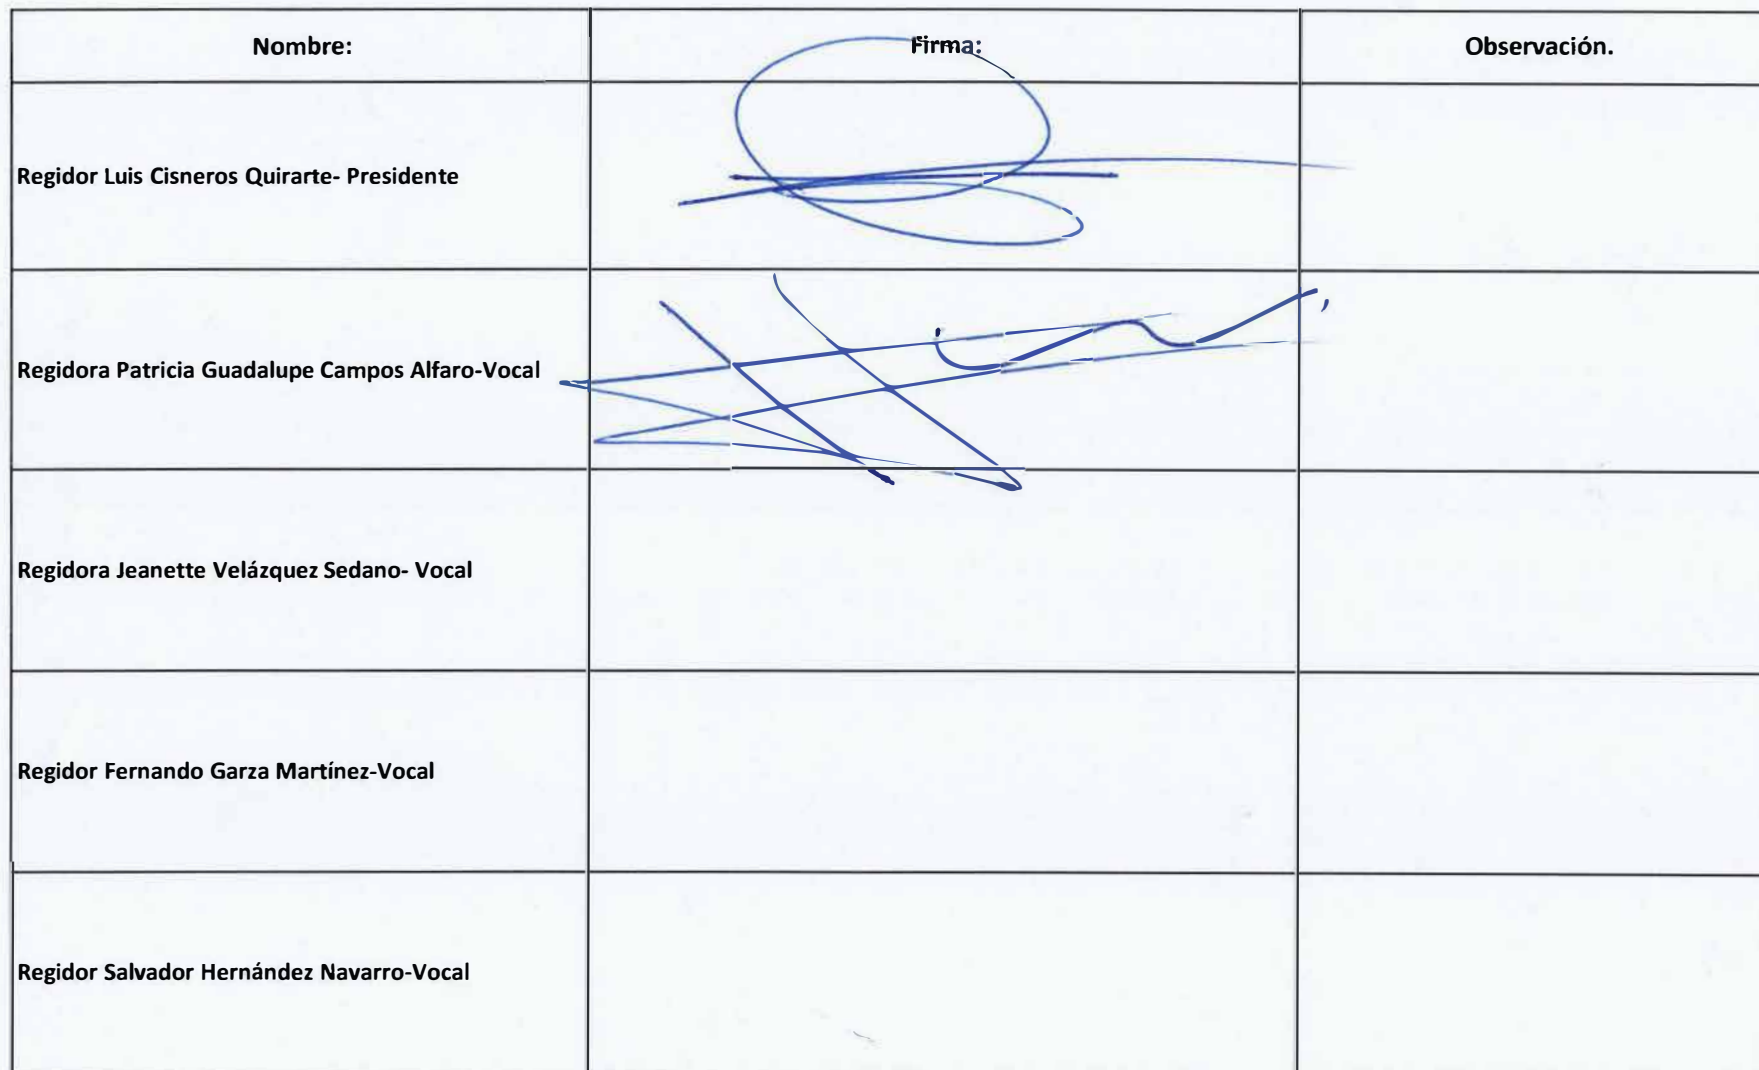 Nombre:
Firma:
Observación.
Regidor Luis Cisneros Quirarte- Presidente
Regidora Patricia Guadalupe Campos Alfaro-Vocal
Regidora Jeanette Velázquez Sedano- Vocal
Regidor Fernando Garza Martínez-Vocal
Regidor Salvador Hernández Navarro-Vocal